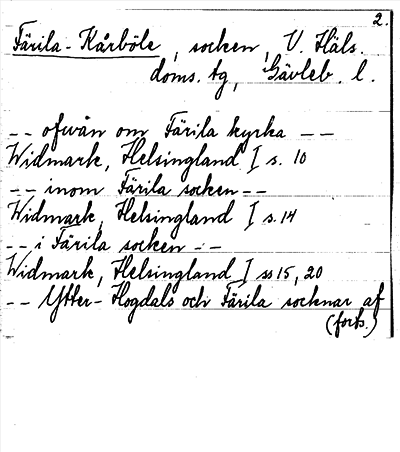 2.
Färila-Kårböle, socken, V. Häls.
doms. tg, Gävleb. l.
-- ofwan om Färila kyrka --
Widmark, Helsingland I s. 10
-- inom Färila socken --
Widmark, Helsingland I s. 14
-- i Färila socken --
Widmark, Helsingland I ss 15, 20
-- Ytter-Hogdals och Färila socknar af
(forts.)